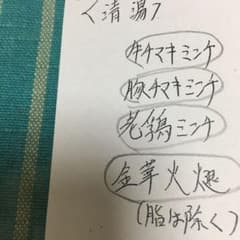 <清湯>
牛チマキミンチ
豚チマキミンチ
老鶏ミンチ
金華火腿
(脂は除く)